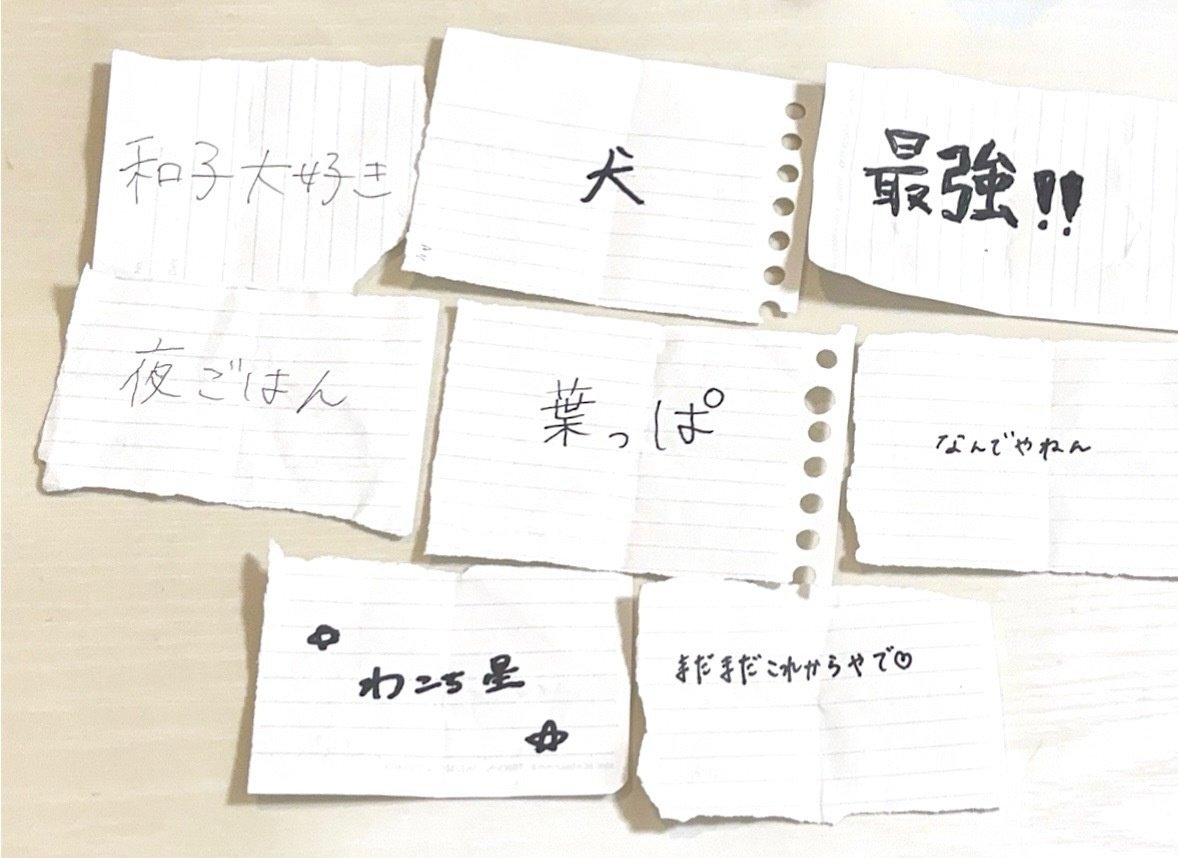 和子大好き
犬
最強!!
夜ごはん
葉っぱ
なんでやねん
☆
わこち星
☆
まだまだこれからやで♡